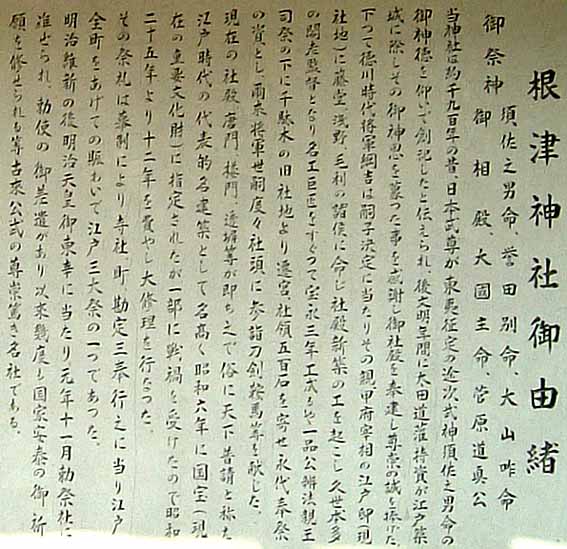 根津神社御由緒
御祭神 須佐之男命、誉田別命、大山咋命
御相殿、大國主命、菅原道真公
当神社は約千九百年の昔、日本武尊が東夷征定の途次武神須佐之男命の
御神徳を仰いで創祀したと伝えられ、後文明年間に太田道灌持資が江戸築
城に際しその御神恩を慕つた事を感謝し御社殿を奉建し尊崇の誠を捧げた。
下つて徳川時代将軍綱吉は嗣子決定に当たりその親甲府宰相の江戸邸(現
社地)に藤堂、浅野、毛利の諸侯に命じ社殿新築の工を起こし久世、本多
の閣老監督となり名工巨匠をすぐつて宝永三年工成るや一品公辨法親王
司祭の下に千駄木の旧社地より遷宮社領五百石を寄せ永代奉祭
の資とし、雨来将軍世嗣度々社頭に参詣刀剣鞍馬等を献じた。
現在の社殿、唐門、楼門、透塀等が即ち之で俗に天下普請と称え
江戸時代の代表的名建築として名高く昭和六年に国宝(現
在の重要文化財)に指定されたが一部に戦禍を受けたので昭和
二十五年より十二年を費やし大修理を行なつた。
その祭礼は幕制により寺社、町、勘定三奉行之に当り江戸
全町をあげての賑わいで江戸三大祭の一つであつた。
明治維新の後明治天皇御東幸に当たり元年十一月勅祭社に
准ぜられ、勅使の御差遣があり以来幾度も国家安泰の御祈
願を修せられる等古来公武の尊崇篤き名社である。